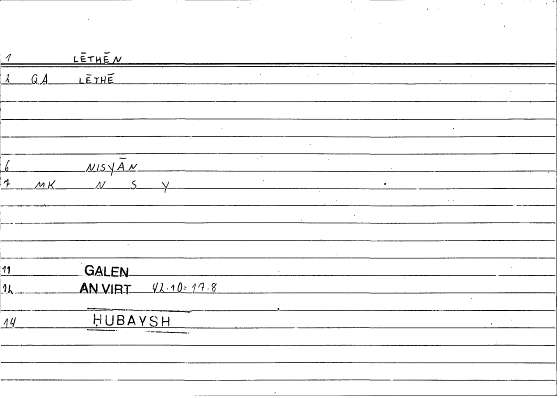 1 LĒTHĒN
2 GA LĒTHĒ
6 NISYĀN
7 MK N S Y
11 GALEN
12 AN VIRT 42.10=17.8
14 ḤUBAYSH